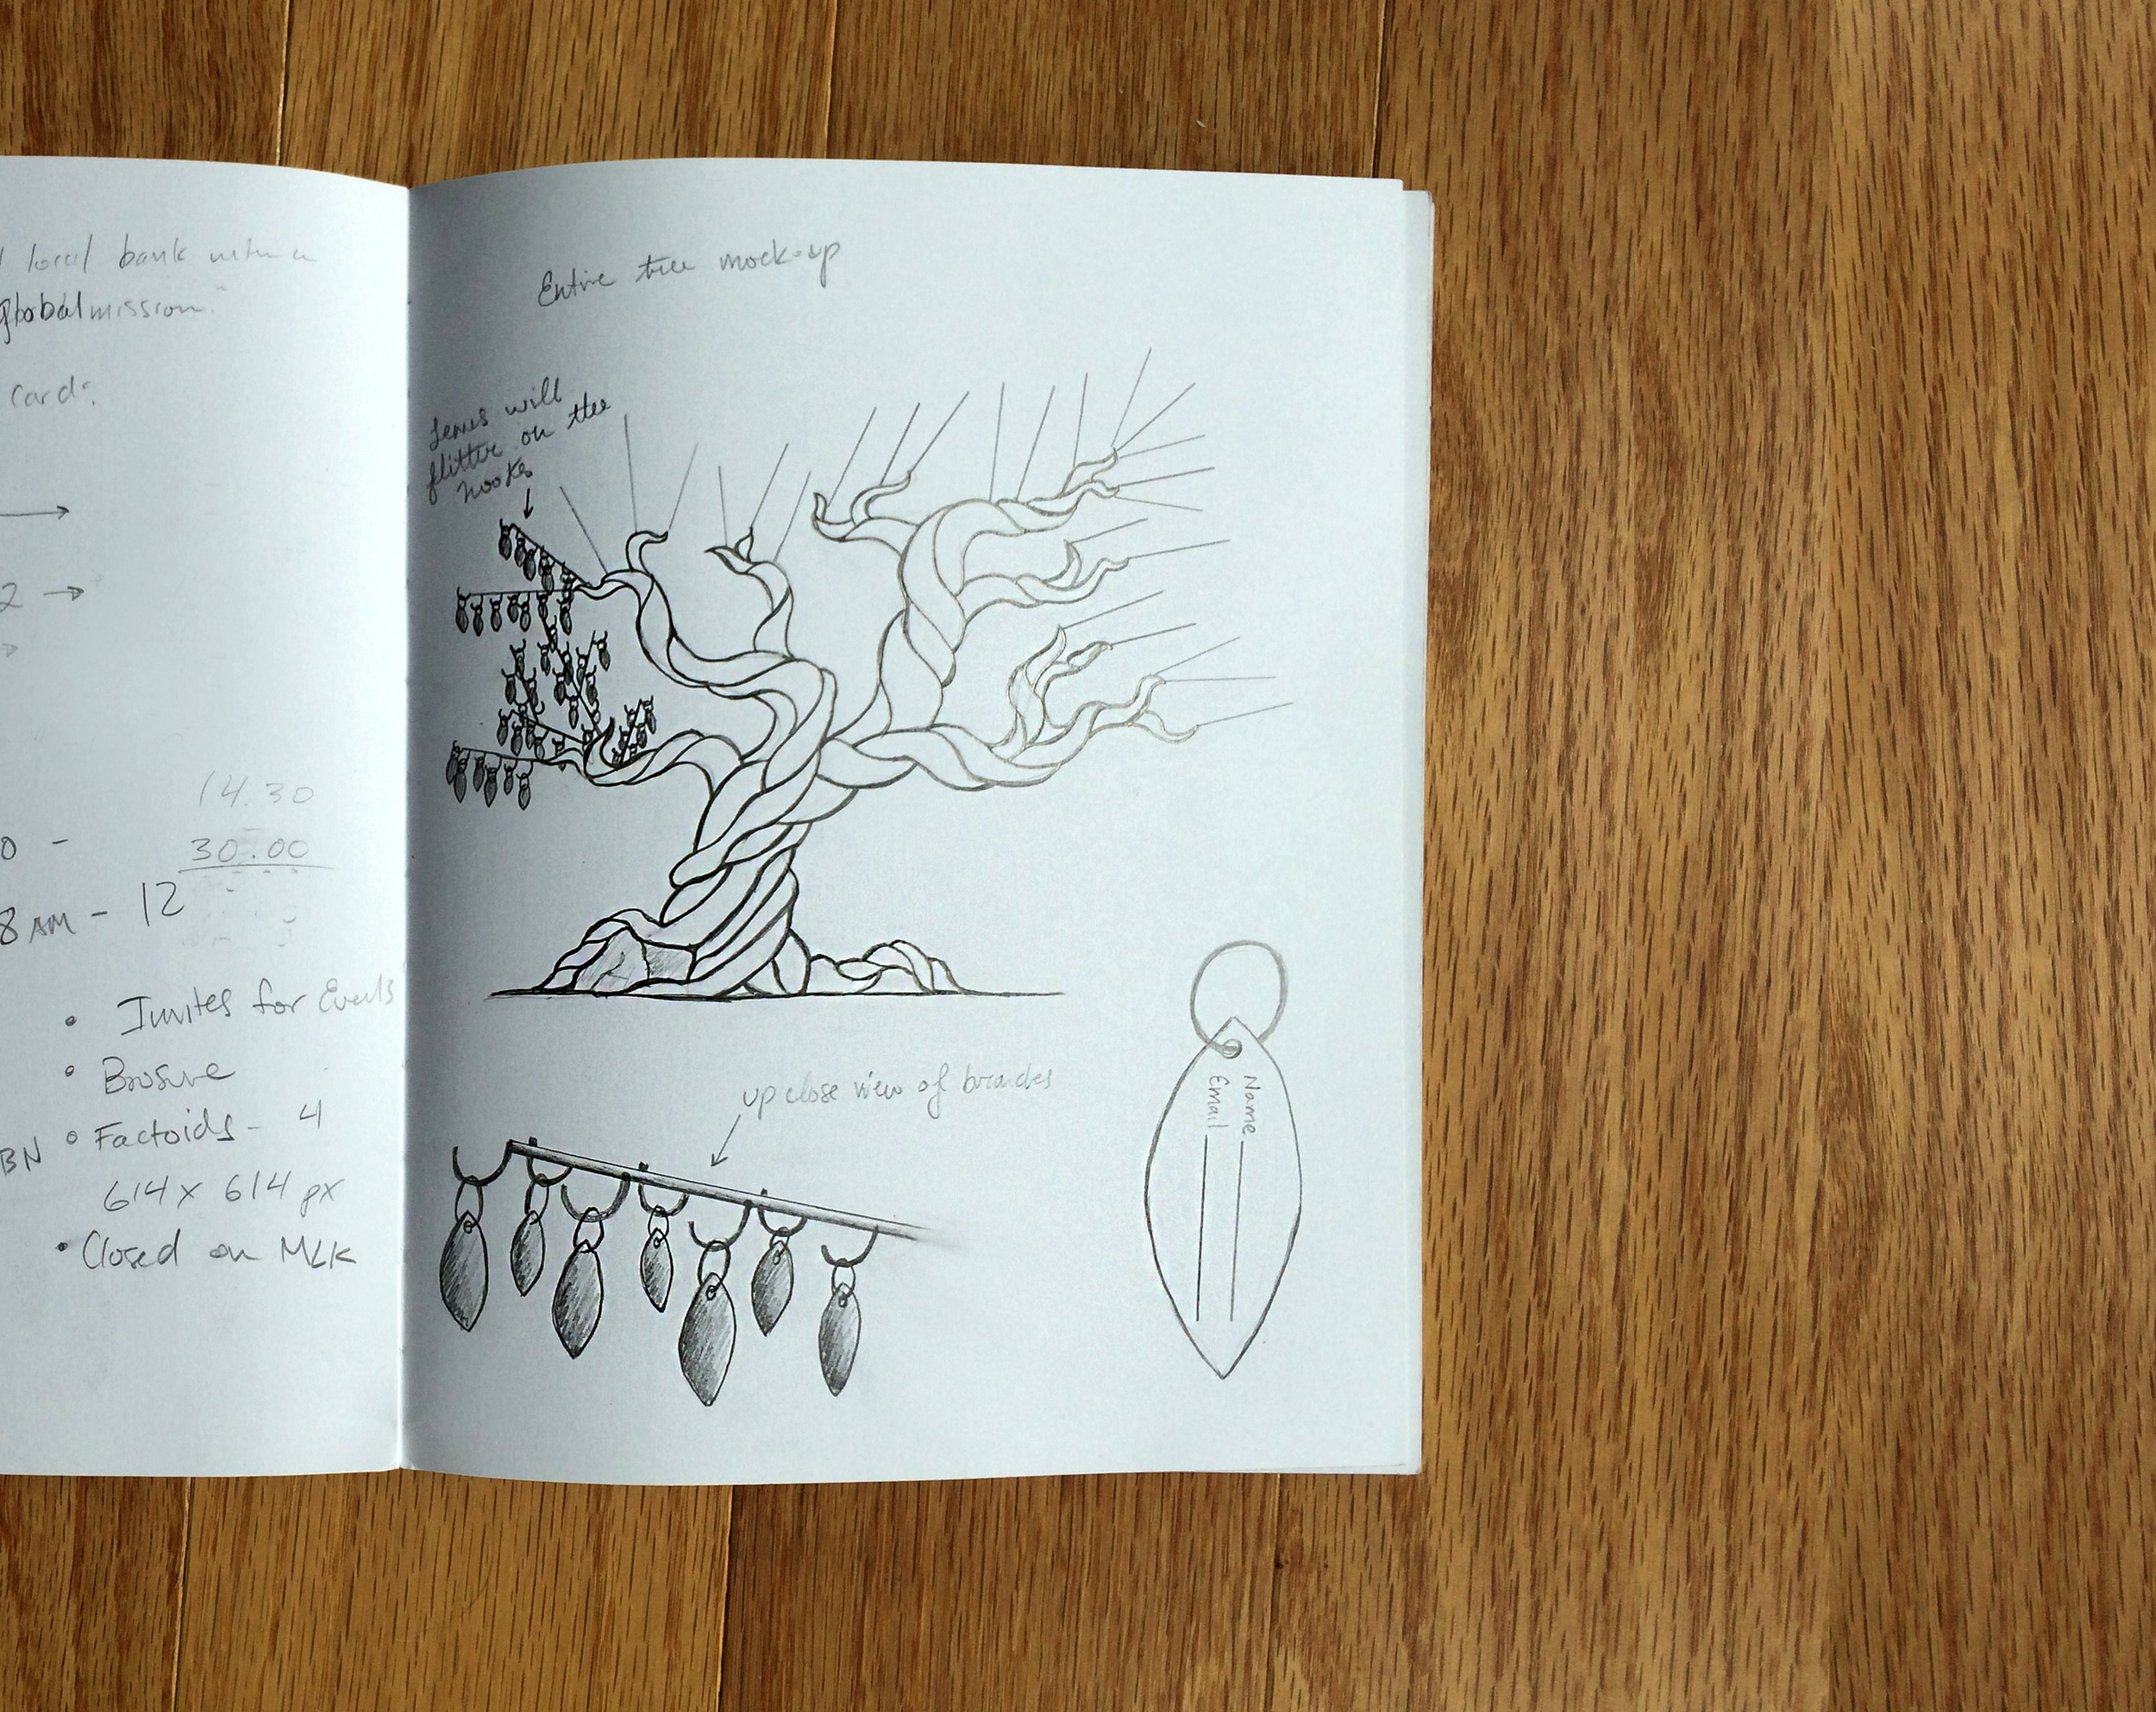 local bank with a
global mission."
Card:
2 →
14.30
30.00
0 -
8 AM - 12
• Invites for Events
• Brosure
BN • Factoids - 4
614 x 614 px
• Closed on MLK
Entire tree mock-up
leaves will
flitter on the
hooks
up close view of branches
Name
Email